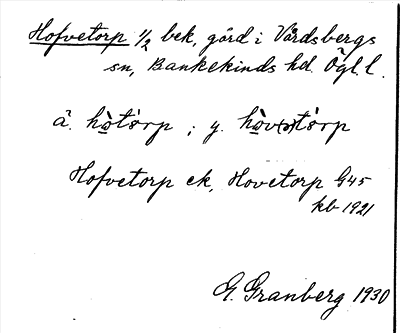 Hofvetorp 1/2 bek, gård i Vårdsbergs
sn, Bankekinds hd. Ögl. l.
ä. hò̤tórp ; y. hò̤v(ə)tórp
Hofvetorp ek, Hovetorp G45
kb 1921
G. Granberg 1930